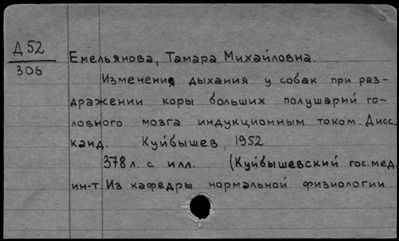 Д 52
306
Емельянова, Тамара Михайловна.
Изменения дыхания у собак при раз-
дражении коры больших полушарий го-
ловного мозга индукционным током. Дисс.
канд. Куйбышев, 1952
378 л. с илл. (Куйбышевский гос. мед.
ин-т. Из кафедры нормальной физиологии